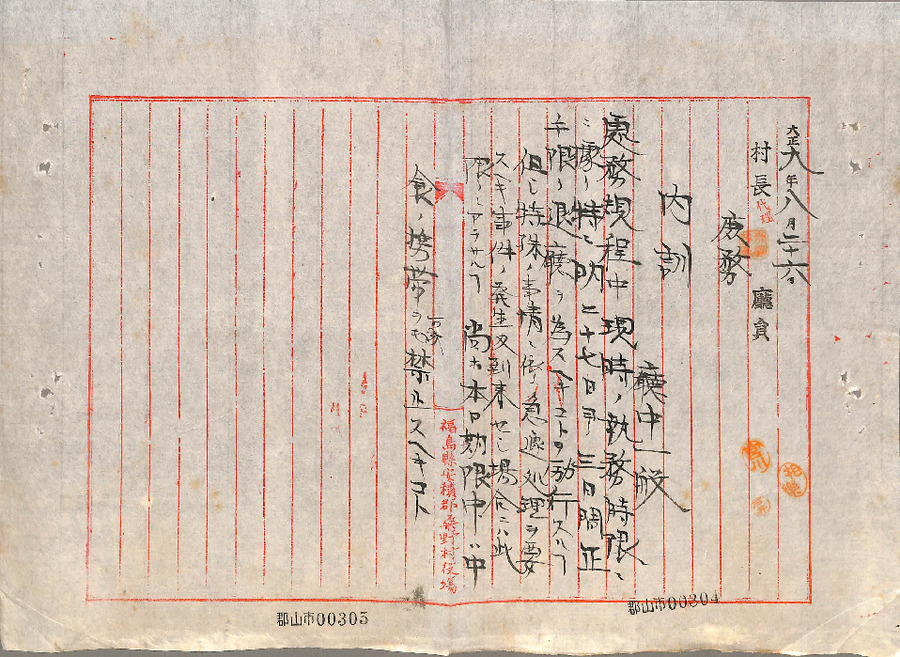 大正八年八月二十六日
村長代理 廳員
庶務
内訓
廳中一般
處務規程中現時ノ執務時限ニ
ニ據リ特ニ明二十七日ヨリ三日間正
午限リ退廳ヲ為スヘキコトヲ勵行スヘシ
但シ特殊ノ事情ニ依リ急遽処理ヲ要
スヘキ事件ノ発生又到来セシ場合ハ此
限リニアラサルモ 尚ホ本日期限中ハ中
食ノ携帯ヲモ禁止スヘキコト
福島縣安積郡桑野村役場
郡山市00305
郡山市00304